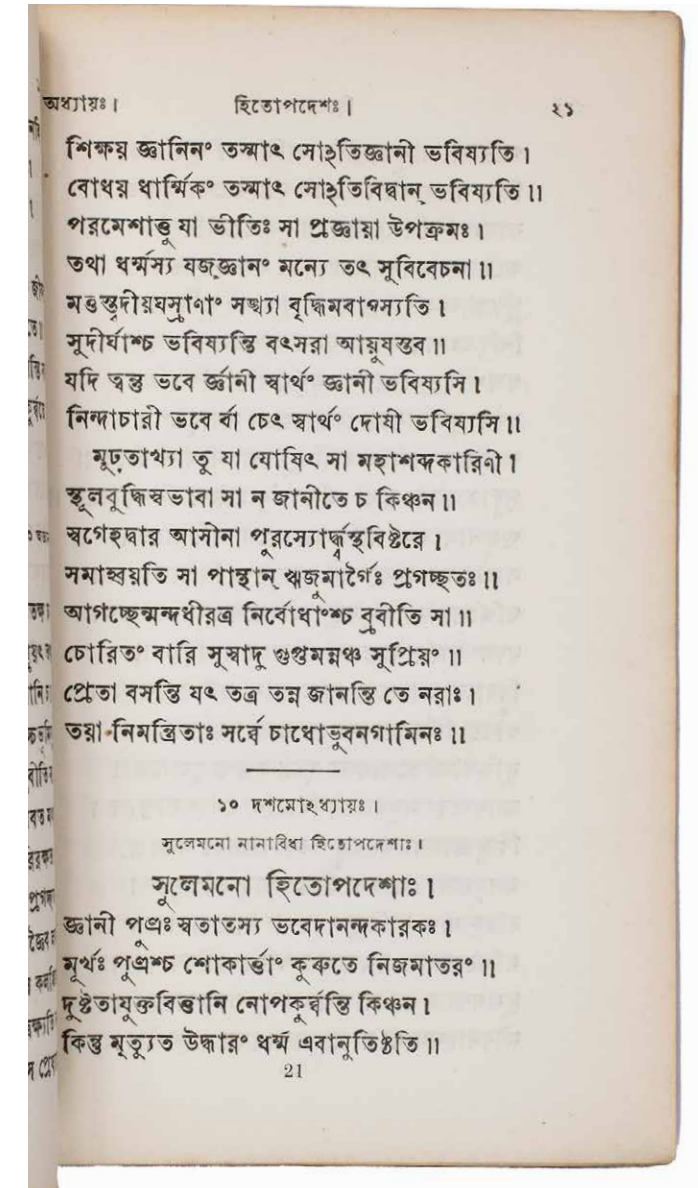 অধ্যায়ঃ। হিতোপদেশঃ। ২১
শিক্ষয় জ্ঞানিনং তস্মাৎ সোঽতিজ্ঞানী ভবিষ্যতি।
বোধয় ধার্ম্মিকং তস্মাৎ সোঽতিবিদ্বান্ ভবিষ্যতি॥
পরমেশাত্তু যা ভীতিঃ সা প্রজ্ঞায়া উপক্রমঃ।
তথা ধর্ম্মস্য যজ্জ্ঞানং মন্যে তৎ সুবিবেচনা॥
মত্তস্ত্বদীয়ঘস্রাণাং সঙ্খ্যা বৃদ্ধিমবাপ্স্যতি।
সুদীর্ঘাশ্চ ভবিষ্যন্তি বৎসরা আয়ুষস্তব॥
যদি ত্বন্তু ভবে র্জ্ঞানী স্বার্থং জ্ঞানী ভবিষ্যসি।
নিন্দাচারী ভবে র্বা চেৎ স্বার্থং দোষী ভবিষ্যসি॥
মূঢ়তাখ্যা তু যা যোষিৎ সা মহাশব্দকারিণী।
স্থূলবুদ্ধিস্বভাবা সা ন জানীতে চ কিঞ্চন॥
স্বগেহদ্বার আসীনা পুরস্যোর্দ্ধ্বস্থবিষ্টরে।
সমাহ্বয়তি সা পান্থান্ ঋজুমার্গৈঃ প্রগচ্ছতঃ॥
আগচ্ছেন্মন্দধীরত্র নির্বোধাংশ্চ ব্রবীতি সা॥
চোরিতং বারি সুস্বাদু গুপ্তমন্নঞ্চ সুপ্রিয়ং॥
প্রেতা বসন্তি যৎ তত্র তন্ন জানন্তি তে নরাঃ।
তয়া নিমন্ত্রিতাঃ সর্ব্বে চাধোভুবনগামিনঃ॥
১০ দশমোঽধ্যায়ঃ।
সুলেমনো নানাবিধা হিতোপদেশাঃ।
সুলেমনো হিতোপদেশাঃ।
জ্ঞানী পুত্রঃ স্বতাতস্য ভবেদানন্দকারকঃ।
মূর্খঃ পুত্রশ্চ শোকার্ত্তাং কুরুতে নিজমাতরং॥
দুষ্টতাযুক্তবিত্তানি নোপকুর্ব্বন্তি কিঞ্চন।
কিন্তু মৃত্যুত উদ্ধারং ধর্ম্ম এবানুতিষ্ঠতি॥
21